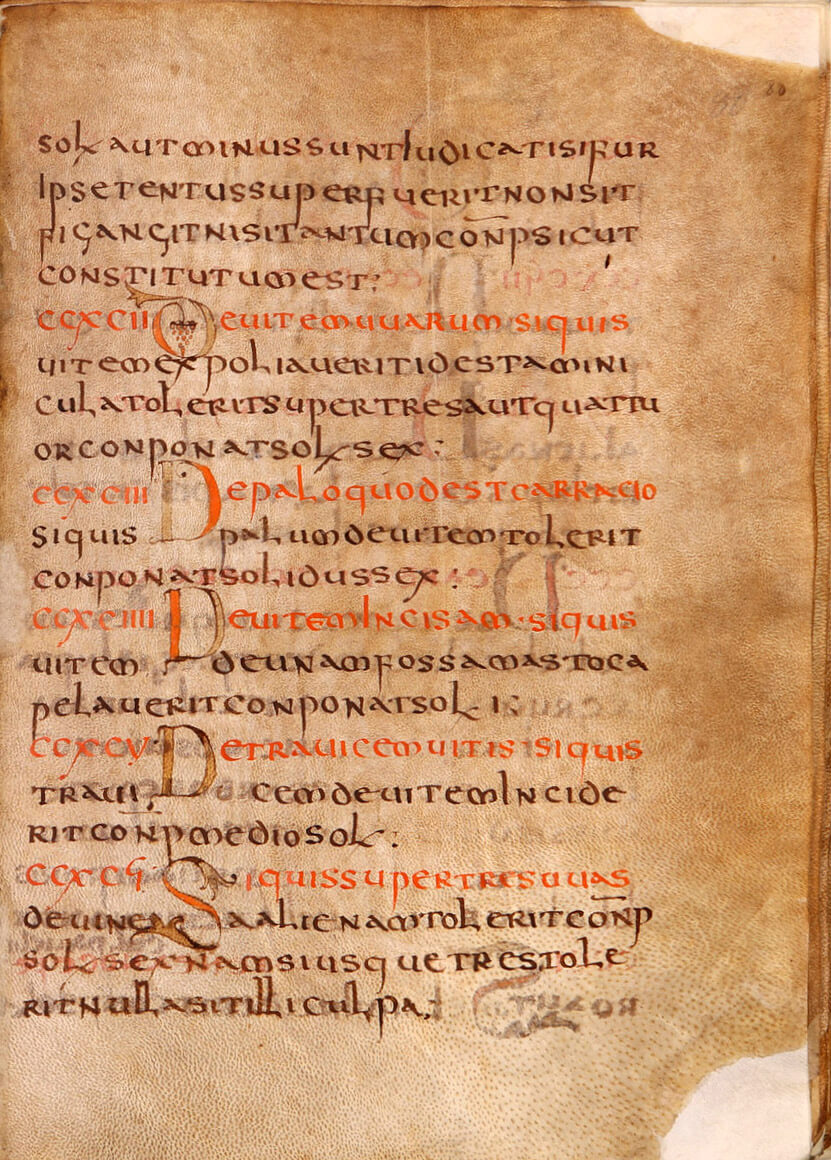 sol aut minus sunt Iudicati si fur
Ipse tentus super fuerit non sit
figangit nisi tantum conp sicut
constitutum est;
CCXCII De uitem uuarum si quis
uitem expoliauerit id est amini
cula tolerit super tres aut quattu
or conponat sol sex:
CCXCIII De palo quod est carracio
si quis palum de uitem tolerit
conponat solidus sex:
CCXCIIII De uitem Incisam · si quis
uitem de unam fossam as toca
pelauerit conponat sol
CCXCV De trauicem uitis si quis
traui cem de uitem Incide
rit conp medio sol:
CCXCVI Si quis super tres uuas
de uinea aliena tolerit conp
sol sex Nam si usque tres tole
rit nulla sit illi culpa;